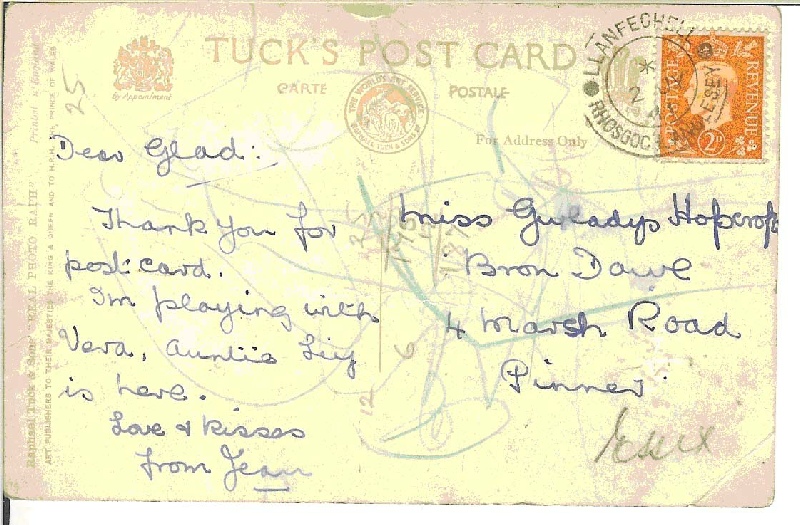 TUCK'S POST CARD
CARTE POSTALE
By Appointment
For Address Only
LLANFECHELL
RHOSGOCH ANGLESEY
REVENUE
2D
25
Dear Glad:
Thank you for
post card.
I'm playing with
Vera, Auntie Lily
is here.
Love & kisses
from Jean
Miss Gwladys Hopcroft
Bron Dawl
4 Marsh Road
Pinner
12 6
Raphael Tuck & Sons' "REAL PHOTO
ART PUBLISHERS TO THEIR MAJESTIES THE KING & QUEEN AND TO H.R.H. THE PRINCE OF WALES